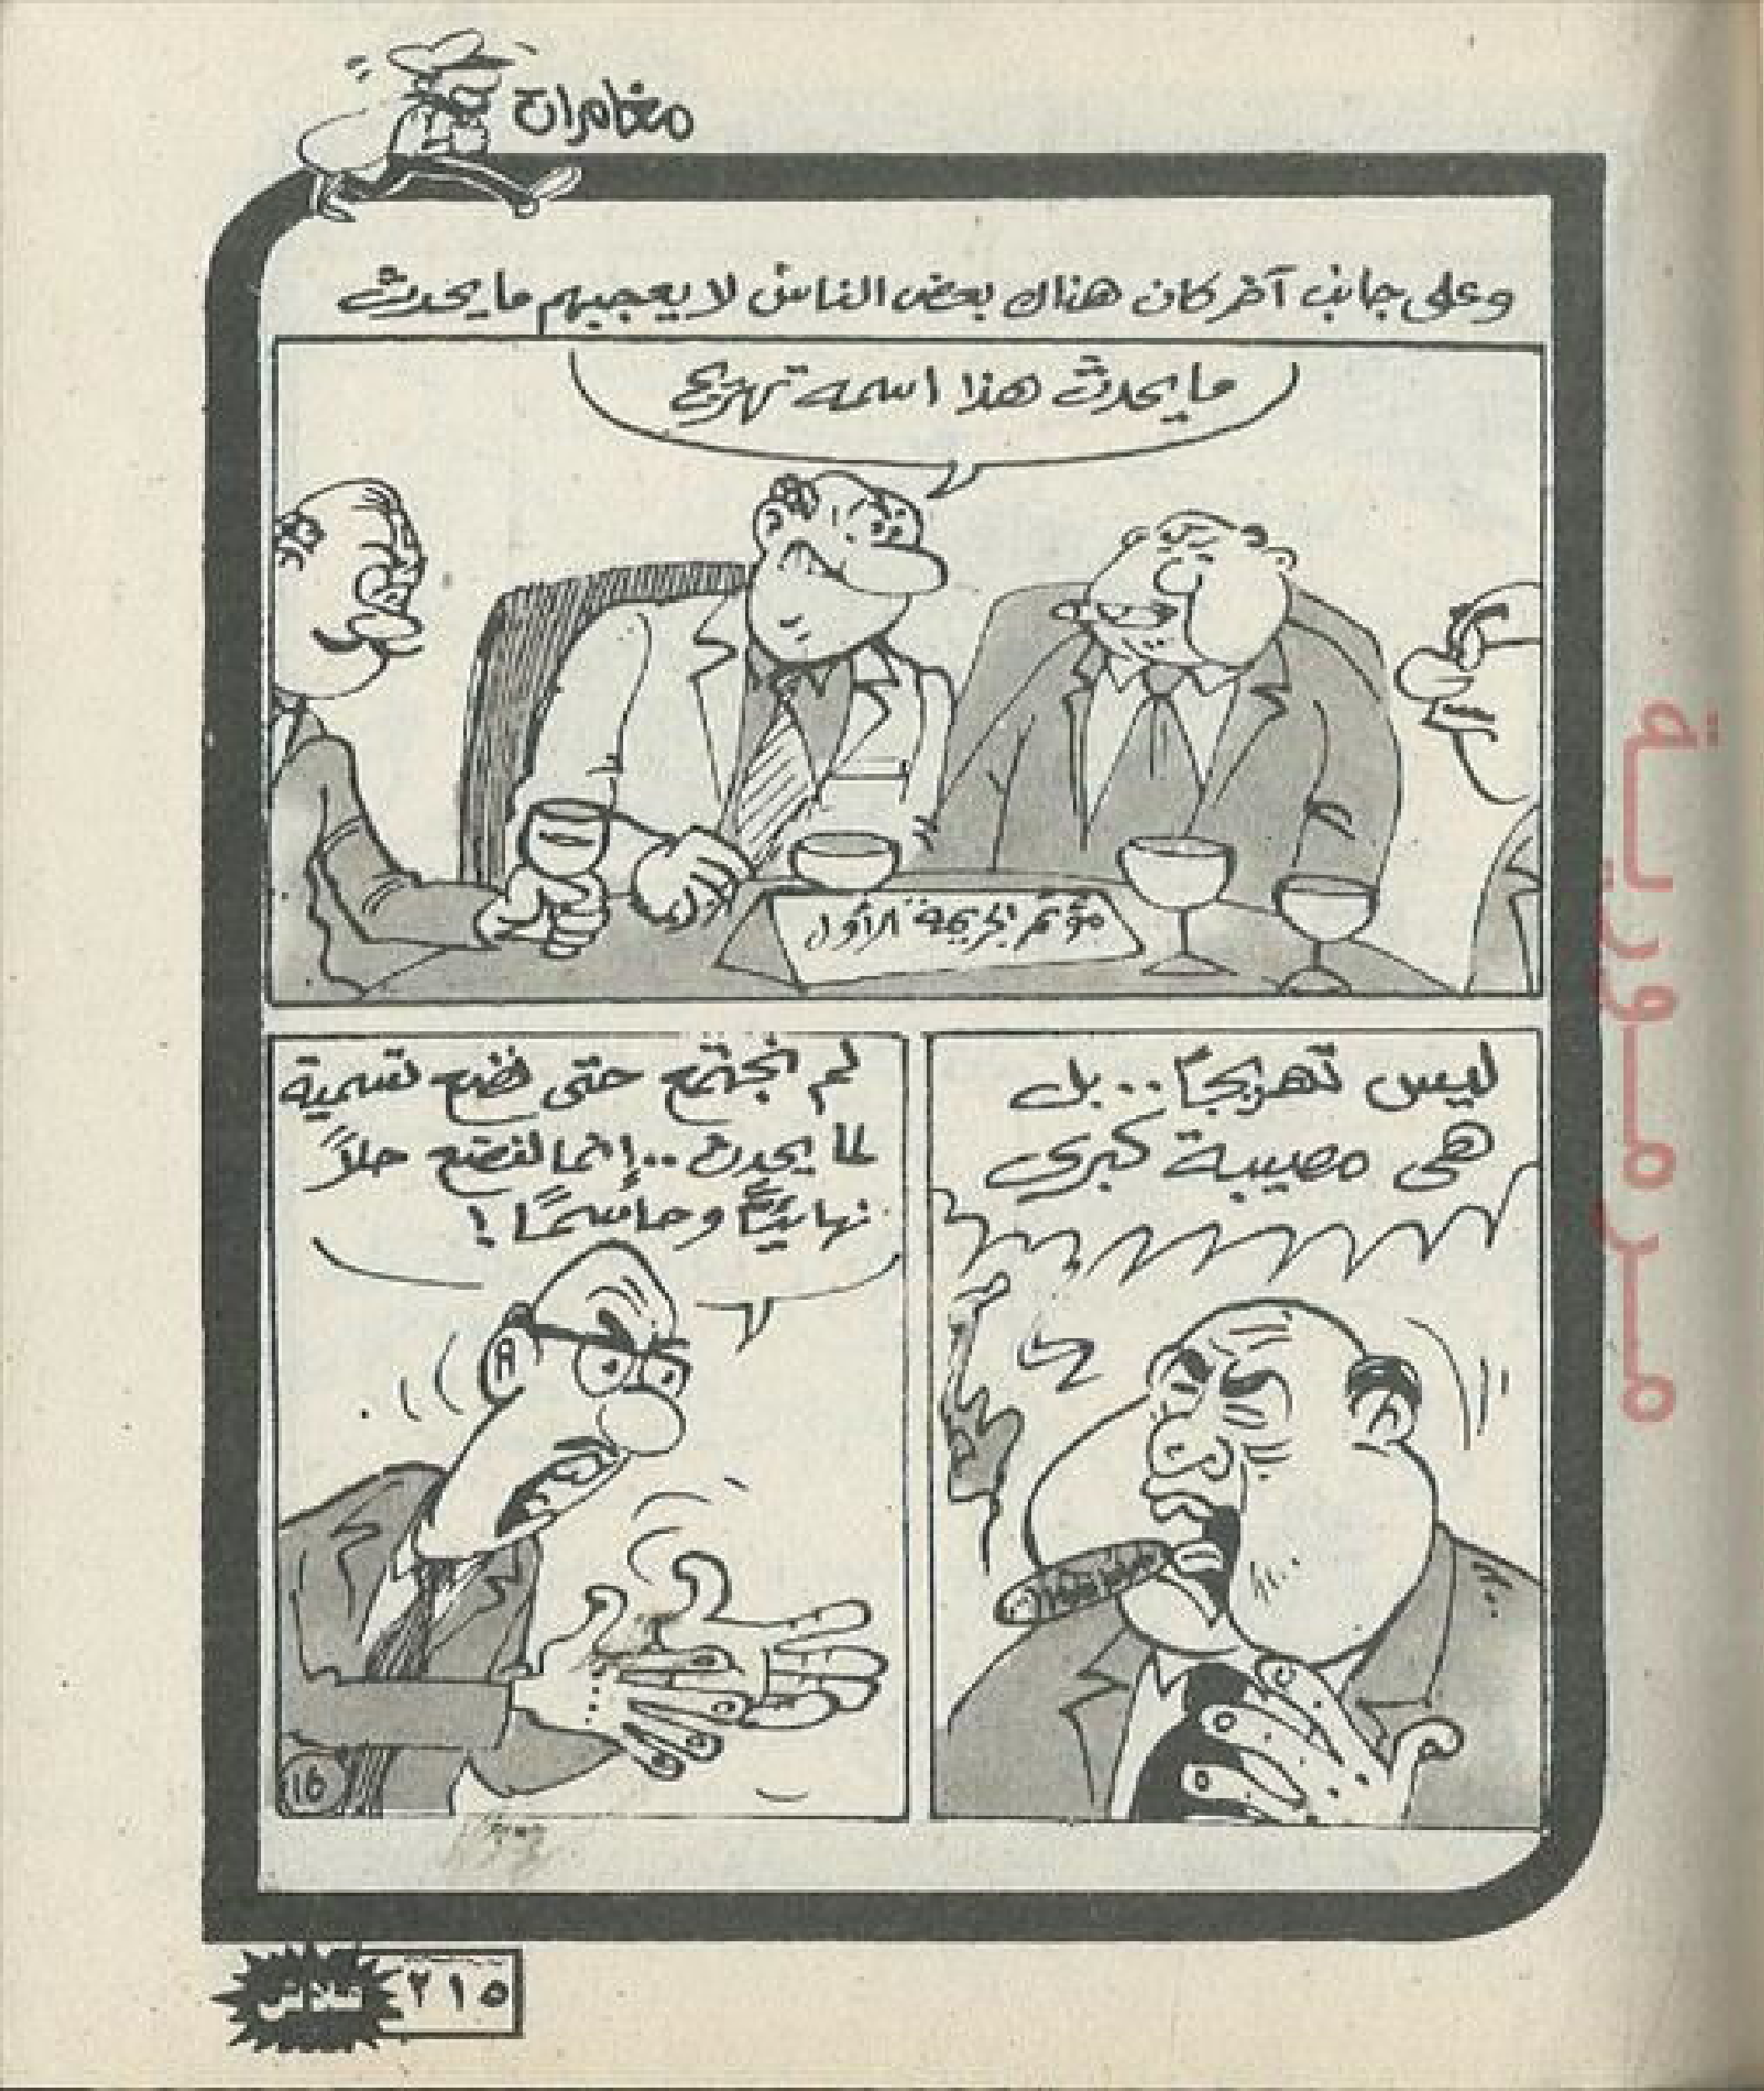 مغامرات
وعلى جانب آخر كان هناك بعض الناس لا يعجبهم ما يحدث
ما يحدث هذا اسمه تهريج
مؤتمر الجريمة الأول
ليس تهريجاً .. بل
هى مصيبة كبرى
لم نجتمع حتى نضع تسمية
لما يحدث .. إنما لنضع حلاً
نهائياً وحاسماً !
١٥
فلاش
٢١٥
مرمورية